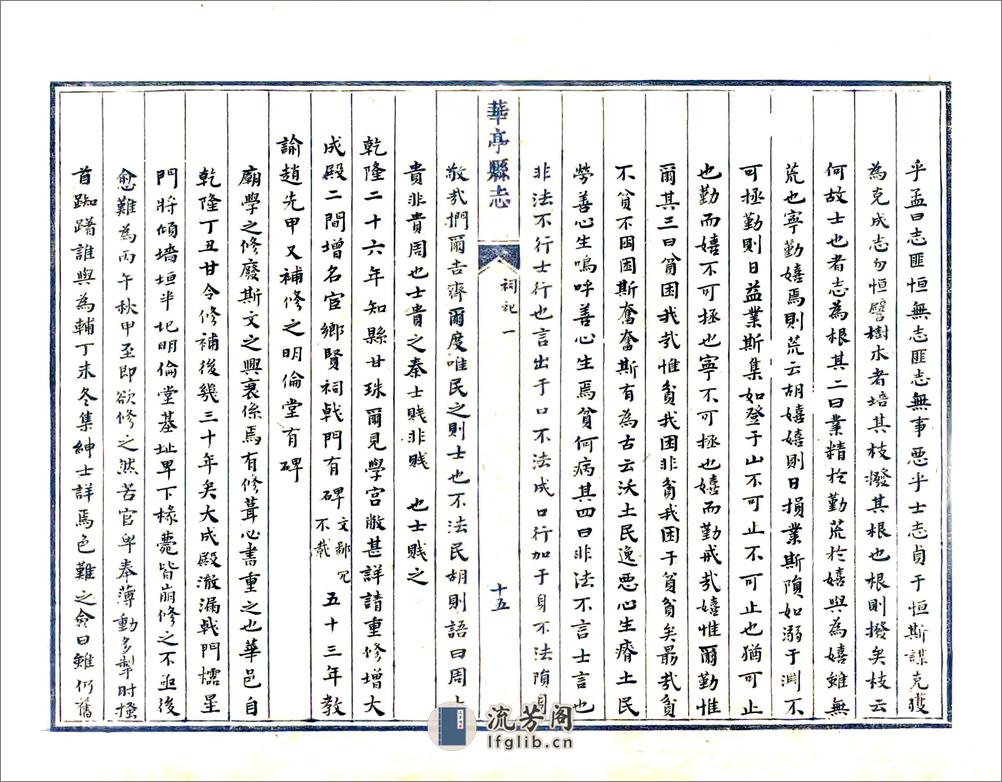 乎孟曰志匪恒無志匪志無事悪乎士志貞于恒斯謀克獲
為克成志匃恒譬樹木者培其枝撥其根也根則撥矣枝云
何故士也者志為根其二曰業精於勤荒於嬉與為嬉雖無
荒也寧勤嬉焉則荒云胡嬉嬉則日損業斯隕如溺于淵不
可拯勤則日益業斯集如登于山不可止不可止也猶可止
也勤而嬉不可拯也寧不可拯也嬉而勤戒哉嬉惟爾勤惟
爾其三曰貧困我哉惟貧我困非貧我困于貧貧矣最哉貧
不貧不困困斯奮奮斯有為古云沃土民逸悪心生瘠土民
勞善心生嗚呼善心生焉貧何病其四曰非法不言士言也
非法不行士行也言出于口不法成口行加于身不法隕身
華亭縣志
祠祀一
十五
敬哉捫爾舌齊爾度唯民之則士也不法民胡則語曰周士
貴非貴周也士貴之秦士賤非賤 也士賤之
乾隆二十六年知縣甘珠爾見學宮敝甚詳請重修增大
成殿二間增名宦鄉賢祠戟門有碑文鄙冗不載五十三年教
諭趙先甲又補修之明倫堂有碑
廟學之修廢斯文之興衰係焉有修葺必書重之也華邑自
乾隆丁丑甘令修補後幾三十年矣大成殿澈漏戟門櫺星
門將傾墻垣半圮明倫堂基址早下椽甍皆崩修之不亟後
愈難為丙午秋甲至即欲修之然苦官卑奉薄動多掣肘搔
首踟躇誰與為輔丁未冬集紳士詳焉色難之僉曰雖仍舊
流芳阁
lfglib.cn